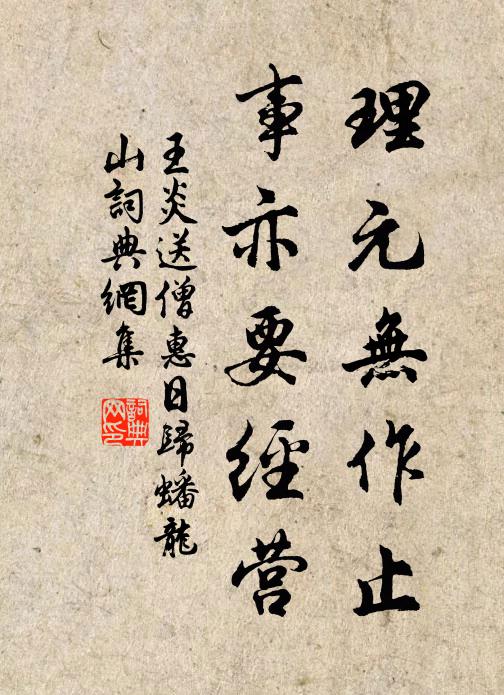 理元無作止
事亦要經营
王炎送僧惠日歸蟠龍
山詞典網集
詞典
网印